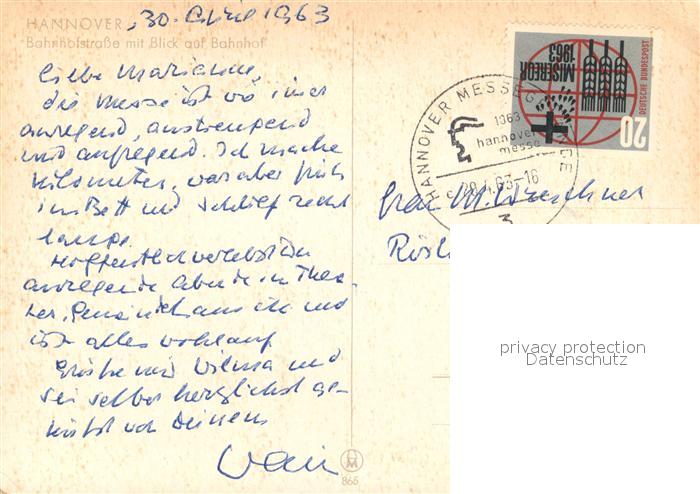 HANNOVER
Bahnhofstraße mit Blick auf Bahnhof
30. April 1963
Liebe Marianne,
die Messe ist wie immer
anregend, anstrengend
und aufregend. Ich mache
Kilometer, war aber früh
ins Bett und schlief recht
lange.
Hoffentlich verlebst Du
anregende Abende im Thea-
ter, und
ist alles wohlauf
Grüße mir Wilma und
sei selber herzlichst ge-
küsst von Deinem
865
HANNOVER MESSEGELÄNDE
1963
hannover
messe
29.4.63-16
3
MISEREOR
1963
20
DEUTSCHE BUNDESPOST
Frau M.
privacy protection
Datenschutz